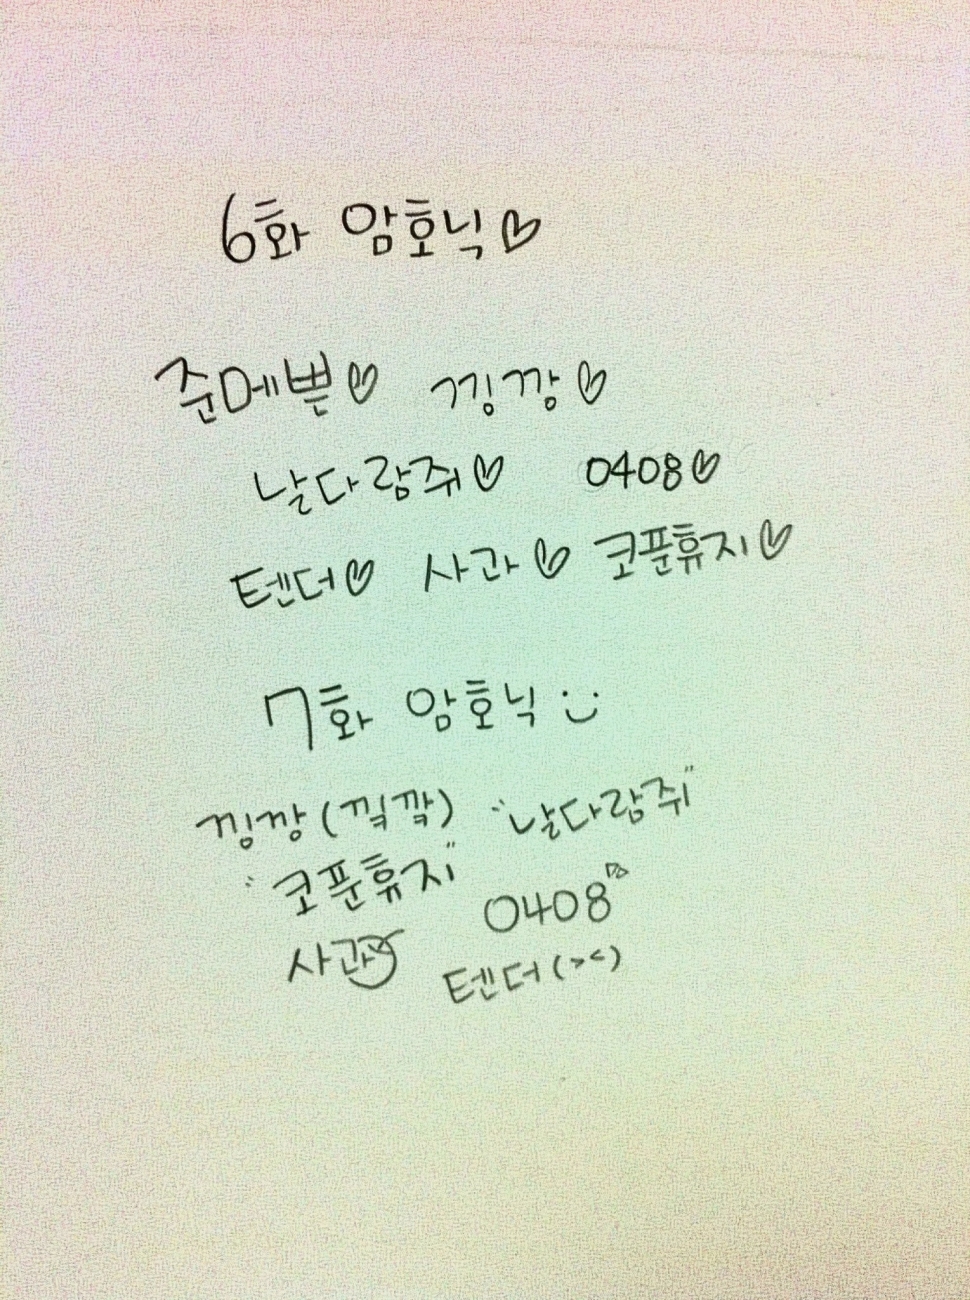 6화 암호닉♡
준메쁜♡ 낑깡♡
날다람쥐♡ 0408♡
텐더♡ 사과♡ 코푼휴지♡
7화 암호닉 :)
낑깡(낔깤) "날다람쥐"
"코푼휴지" 0408♡
사과 텐더(><)